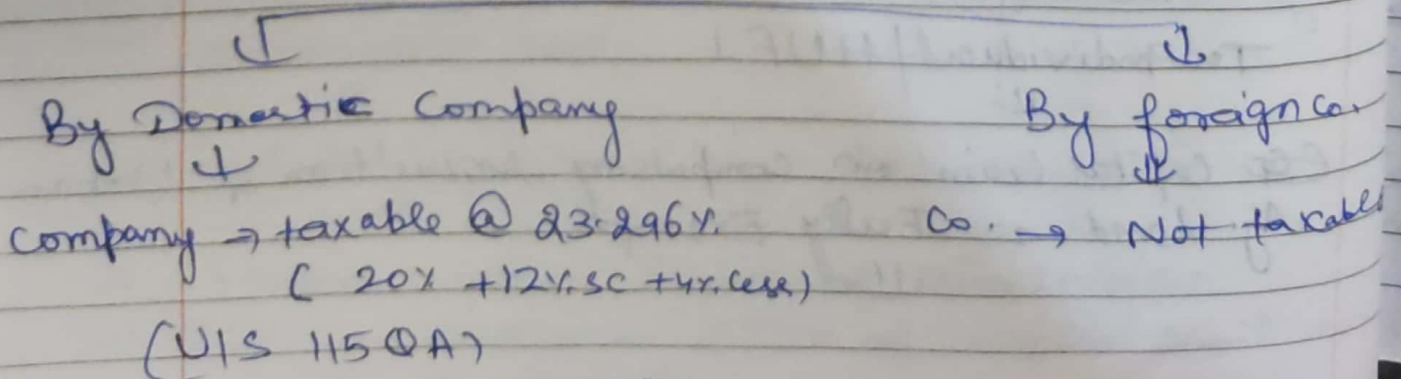 By Domestic Company By foreign Co.
Company → taxable @ 23.296%. Co. → Not taxable
( 20% + 12% SC + 4% Cess)
(U/S 115QA)